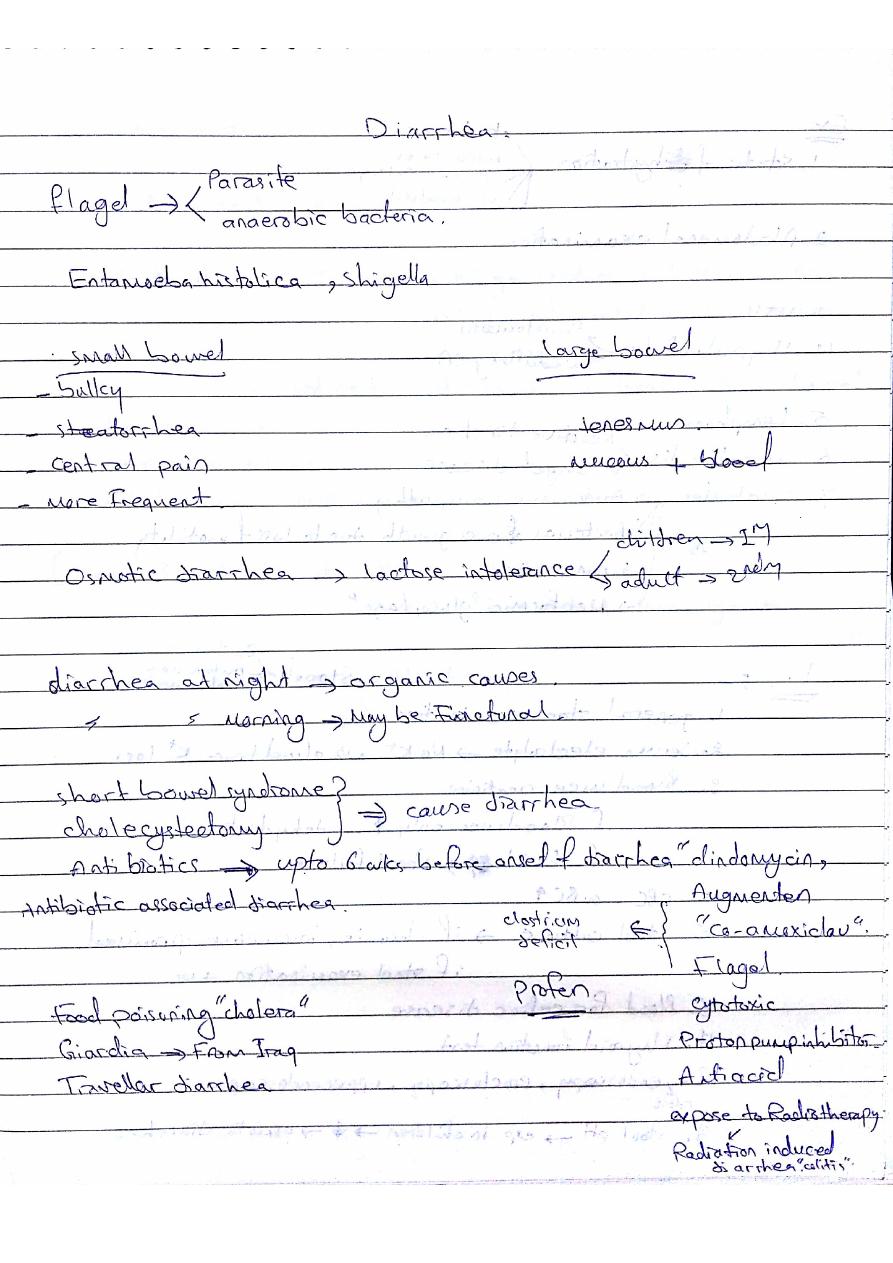 Diarrhea.
Flagel → < Parasite
anaerobic bacteria.
Entamoeba histolica , Shigella
small bowel large bowel
- bulky
- steatorrhea tenesmus.
- Central pain mucous + blood
- More Frequent
children → 1ry
Osmotic diarrhea → lactose intolerance < adult → 2ndry
diarrhea at night → organic causes.
〃 〃 Morning → May be Functunal.
short bowel syndrome } ⇒ cause diarrhea.
cholecystectomy
Antibiotics → upto 6 wks before onset of diarrhea "clindomycin,
Antibiotic associated diarrhea. Augmenten
clostrium deficil ⇐ { "Co-amoxiclav".
Flagel
Profen
Food poisoning "cholera" Cytotoxic
Giardia → From Iraq Proton pump inhibitor
Travellar diarrhea Antiacid
expose to Radiotherapy.
Radiation induced
diarrhea "colitis".